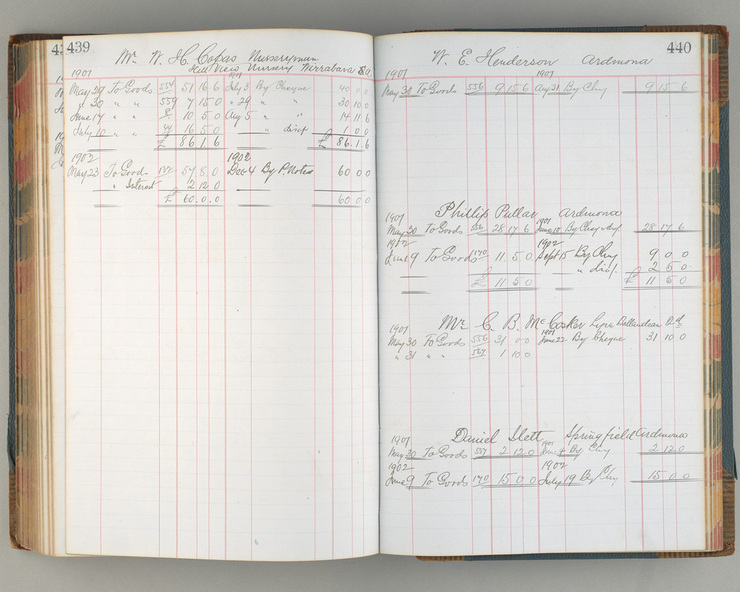 439
Mr W. H. Copas Nurseryman
Hill View Nursery Wirrabara S.A.
1901
May 29 To Goods 554 51 16 6 July 3 By Cheque 40 0 0
" 30 " " 559 7 15 0 " 29 " " 30 10 0
June 14 " " 10 5 0 Aug 5 " " 14 11 6
July 10 " " 16 5 0 " disct 1 0 0
£ 86 1 6 £ 86 1 6
1902 1902
May 23 To Goods 57 8 0 Dec 4 By P. Notes 60 0 0
" Interest 2 12 0
£ 60 0 0 60 0 0
440
W. E. Henderson Ardmona
1901 1901
May 30 To Goods 556 9 15 6 Aug 31 By Chq 9 15 6
Phillip Pullar Ardmona
1901 1901
May 30 To Goods 556 28 17 6 June 18 By Chq 28 17 6
1902 1902
June 9 To Goods 170 11 5 0 Sept 15 By Chq 9 0 0
" disct 2 5 0
£ 11 5 0 £ 11 5 0
Mr C. B. McCosker Ballandean
1901 1901
May 30 To Goods 556 31 0 0 June 22 By Cheque 31 10 0
" 31 " " 557 1 10 0
Daniel Ilett Springfield Ardmona
1901 1901
May 30 To Goods 557 2 12 0 June By Chq 2 12 0
1902 1902
June 9 To Goods 170 15 0 0 July 19 By Chq 15 0 0